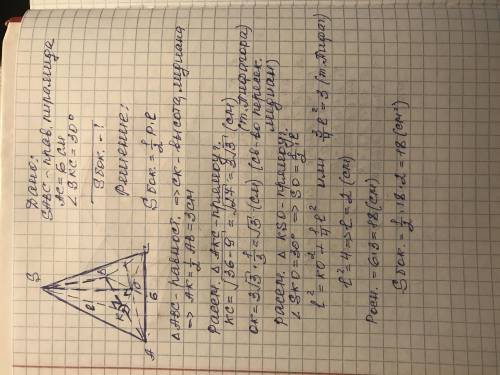 Дано:
SABC - прав. пирамида
AC = 6 см
∠SKC = 30°
Sбок. - ?
Решение:
Sбок = 1/2 P·l
△ABC - равност. ⇒ CK - высота, медиана
⇒ AK = 1/2 AB = 3см
Рассм. △AKC - прямоуг.
KC = √36-9 = √27 = 3√3 (см)
(т. Пифагора)
OK = 3√3 · 1/3 = √3 (см) (св-во пересек. медиан)
Рассм. △KSO - прямоуг.
∠SKO = 30° ⇒ SO = 1/2 · l
l² = KO² + 1/4 l² или 3/4 l² = 3 (т. Пифаг)
l² = 4 ⇒ l = 2 (см)
Pосн. = 6·3 = 18 (см)
Sбок. = 1/2 · 18 · 2 = 18 (см²)
S
l
K
O
B
A
6
C